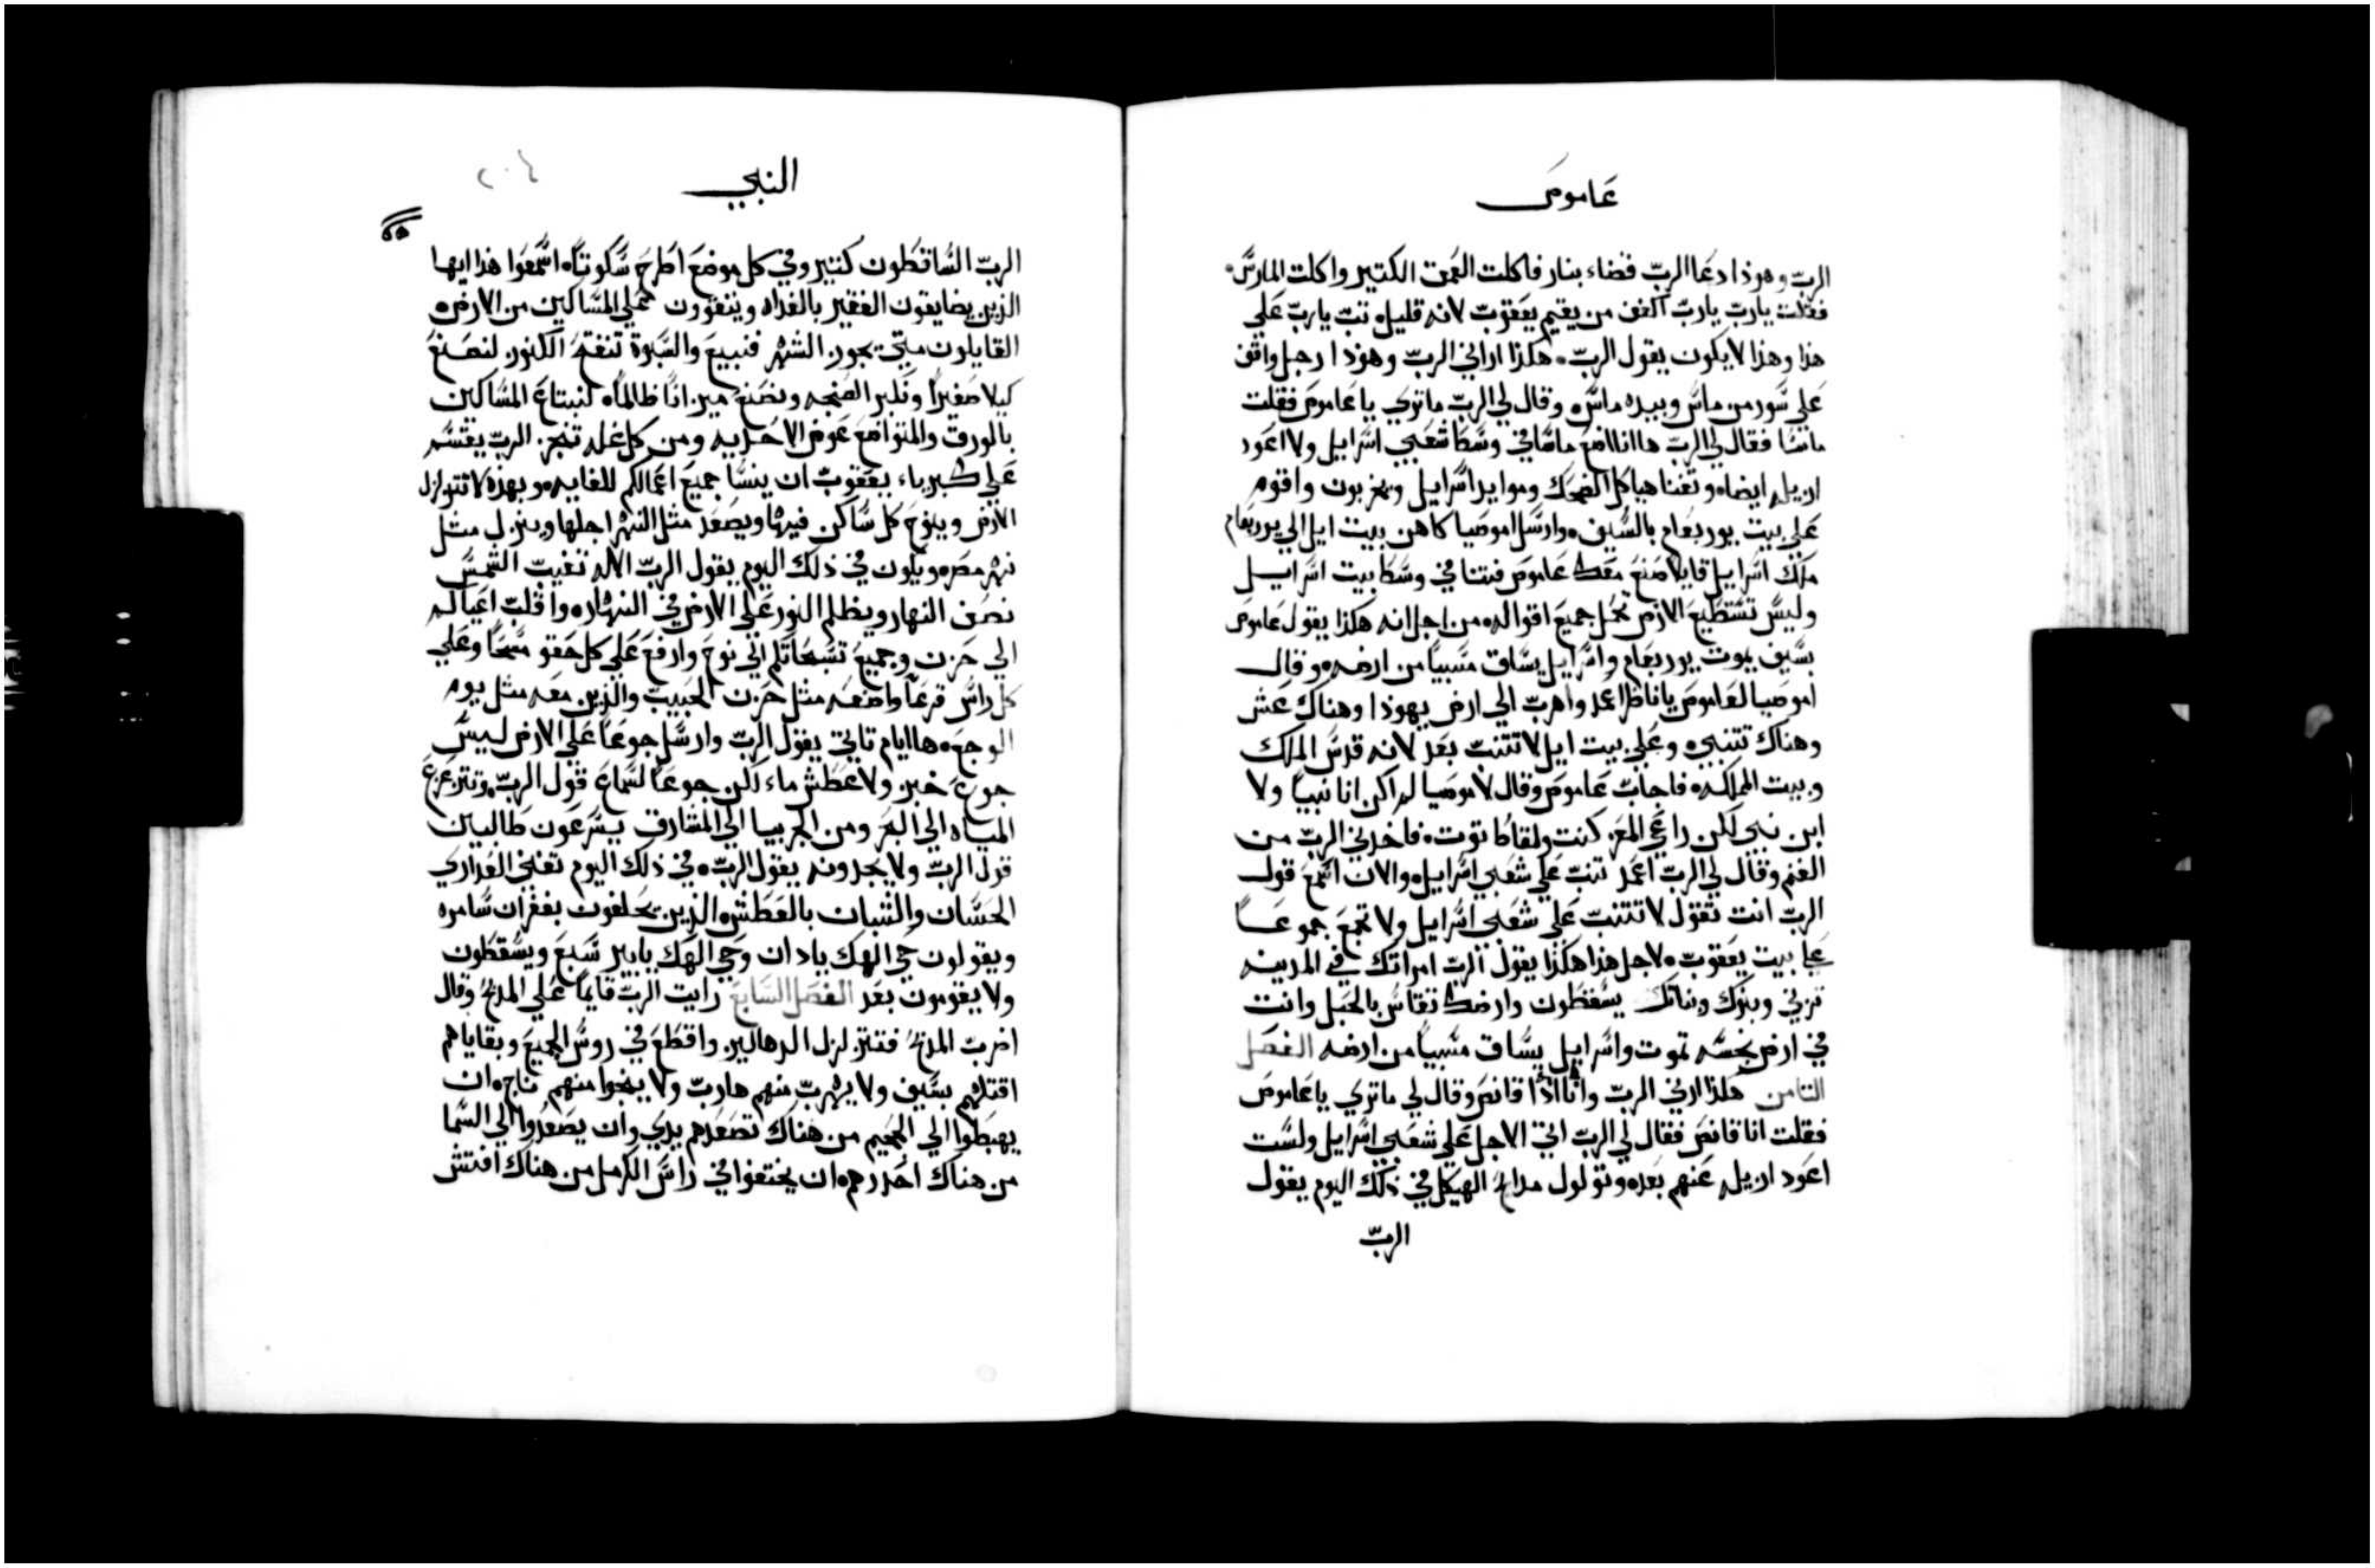 عاموص
الربّ وهوذا دعا الربّ قضاء بنار فاكلت العمق الكتير واكلت المارس
فقلت يارب يارب اكفف من يقيم يعقوب لانه قليل تب يارب علي
هذا وهذا لا يكون يقول الرب هكذا اراني الرب وهوذا رجل واقف
علي سور من ماس وبيده ماس وقال لي الرب ماتري يا عاموص فقلت
ماسا فقال لي الرب ها انا اضع ماسا في وسط شعبي اسرايل ولا اعود
ازيله ايضا وتفنا هياكل الضحك وموايد اسرايل وتخربون واقوم
علي بيت يوربعام بالسيف وارسل اموصيا كاهن بيت ايل الي يوربعام
ملك اسرايل قايلا صنع معك عاموص فتنا في وسط بيت اسرايل
وليس تستطيع الارض تحمل جميع اقواله من اجل انه هكذا يقول عاموص
بسيف يموت يوربعام واسرايل يساق مسبيا من ارضه وقال
اموصيا لعاموص يا ناظرا عد واهرب الي ارض يهوذا وهناك عش
وهناك تتنبي وعلي بيت ايل لا تتنب بعد لانه قدس الملك
وبيت المملكه فاجاب عاموص وقال لاموصيا لم اكن انا نبيا ولا
ابن نبي لكن راعي المعز كنت ولقاط توت فاخدني الرب من
الغنم وقال لي الرب اعمد تنب علي شعبي اسرايل والان اسمع قول
الرب انت تقول لا تتنب علي شعبي اسرايل ولا تجمع جموعا
علي بيت يعقوب لاجل هذا هكذا يقول الرب امراتك في المدينه
تزني وبنوك وبناتك يسقطون وارضك تقاس بالحبل وانت
في ارض نجسه تموت واسرايل يساق مسبيا من ارضه الفصل
التامن هكذا اراني الرب وانا اذا قانص وقال لي ماتري يا عاموص
فقلت انا قانص فقال لي الرب اتي الاجل علي شعبي اسرايل ولست
اعود ازيله عنهم بعده وتولول مدابح الهيكل في ذلك اليوم يقول
الربّ
النبي
٢٠٤
الربّ الساقطون كتير وفي كل موضع اطرح سكوتا اسمعوا هذا ايها
الذين يضايقون الفقير بالغداه وينفوون علي المساكين من الارض
القايلون متي يجوز الشهر فنبيع والسبوة تنفتح الكنوز لنصنع
كيلا صغيرا ونكبر الصنجه ونصنع ميزانا ظالما لنبتاع المساكين
بالورق والمتواضع عوض الاحديه ومن كل غله تنجر الرب يقسم
علي كبرياء يعقوب ان ينسا جميع اعمالكم للغايه وبهذه لا تتزلزل
الارض وينوح كل ساكن فيها ويصعد مثل النهر اجلها وينزل مثل
نهر مصر ويكون في ذلك اليوم يقول الرب الاله تغيب الشمس
نصف النهار ويظلم النور علي الارض في النهار واقلب اعيادكم
الي حزن وجميع تسبحاتكم الي نوح وارفع علي كل حقو مسحا وعلي
كل راس قرعا واضعه مثل حزن الحبيب والذين معه مثل يوم
الوجع ها ايام تاتي يقول الرب وارسل جوعا علي الارض ليس
جوع خبز ولا عطش ماء لكن جوعا لسماع قول الرب وتتزعزع
المياه الي البحر ومن الجربيا الي المشارق يسرعون طالبين
قول الرب ولا يجدونه يقول الرب في ذلك اليوم تفني العداري
الحسان والشبان بالعطش الذين يحلفون بغفران سامره
ويقولون حي الهك يا دان وحي الهك يا بير سبع ويسقطون
ولا يقومون بعد الفصل السابع رايت الرب قايما علي المدبح وقال
اضرب المدبح فتتزلزل الدهاليز واقطع في روس الجميع وبقاياهم
اقتلهم بسيف ولا يهرب منهم هارب ولا ينجوا منهم ناج وان
يهبطوا الي الجحيم من هناك تصعدهم يدي وان يصعدوا الي السما
من هناك احدرهم وان يختفوا في راس الكرمل من هناك افتش